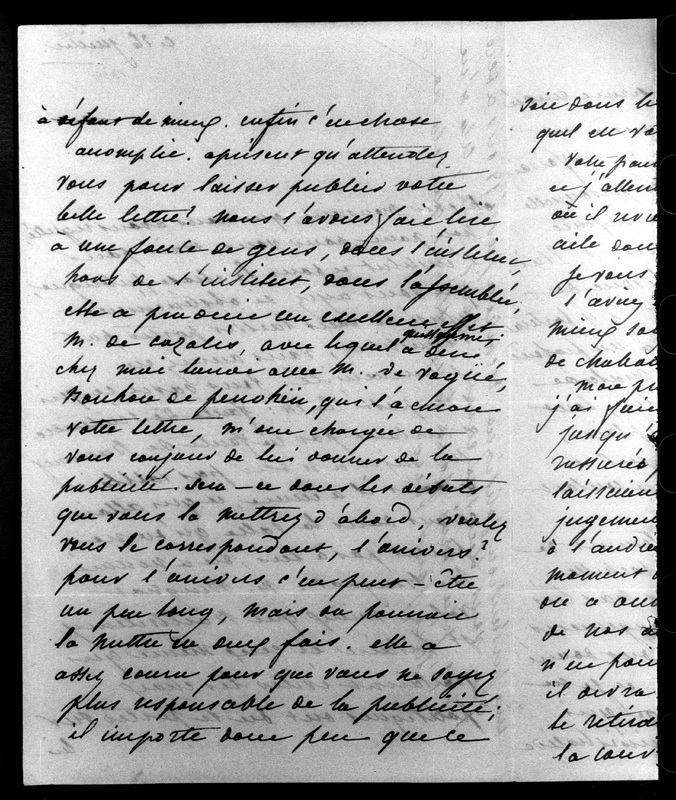 à défaut de mieux. enfin c'en chose
accomplie. a présent qu'attendez
vous pour laisser publier votre
belle lettre? nous l'avons fait lire
a une foule de gens, dans l'institut,
hors de l'institut, dans l'assemblée,
elle a produit un excellent effet
M. de cazalès, avec lequel a diné
chez moi lundi avec M. de Vogüé,
Bonhou de penohën, qui l'a encore
votre lettre, m'ont chargée de
vous conjurer de lui donner de la
publicité. sera-ce dans les débats
que vous la mettrez d'abord, voulez
vous le correspondant, l'univers?
pour l'univers c'en peut-être
un peu long, mais on pourrait
la mettre en deux fois. elle a
assez couru pour que vous ne soyez
plus responsable de la publicité;
il importe donc peu que ce
soie dans le
quel elle
votre pour
ce j'atten
où il
aile don
je vous
l'aviez
mieux
de chabot
mon
j'ai fait
jusqu'
rassurée,
laissaient
jugement
à l'andr
moment
on a
de nos
n'en poin
il devra
le retira
la cour